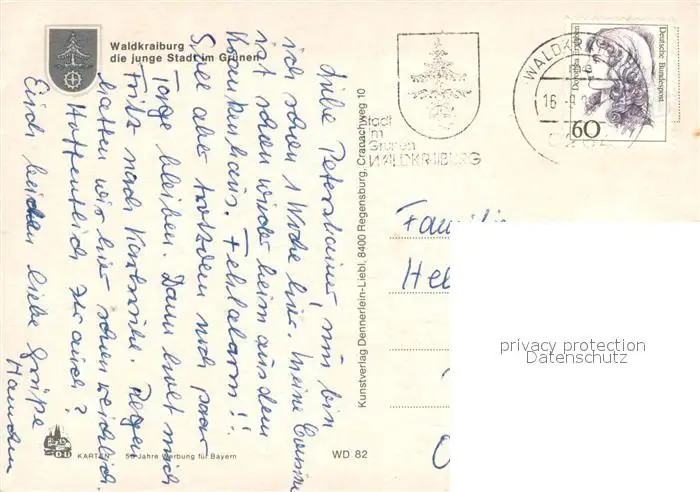 Waldkraiburg
die junge Stadt im Grünen
Liebe Petershainer, nun bin
ich schon 1 Woche hier. Meine Cousine
ist schon wieder heim aus dem
Krankenhaus. Fehlalarm!!
Soll aber trotzdem noch paar
Tage bleiben. Dann holt mich
Fritz nach Karlsruhe. Regen
hatten wir hier schon reichlich.
Hoffentlich Ihr auch?
Euch beiden liebe Grüße
KARTEN 50 Jahre Werbung für Bayern
WD 82
Kunstverlag Dennerlein-Liebl, 8400 Regensburg, Cranachweg 10
Stadt
im
Grünen
WALDKRAIBURG
WALDK
16
Deutsche Bundespost
60
Familie
Hel
privacy protection
Datenschutz